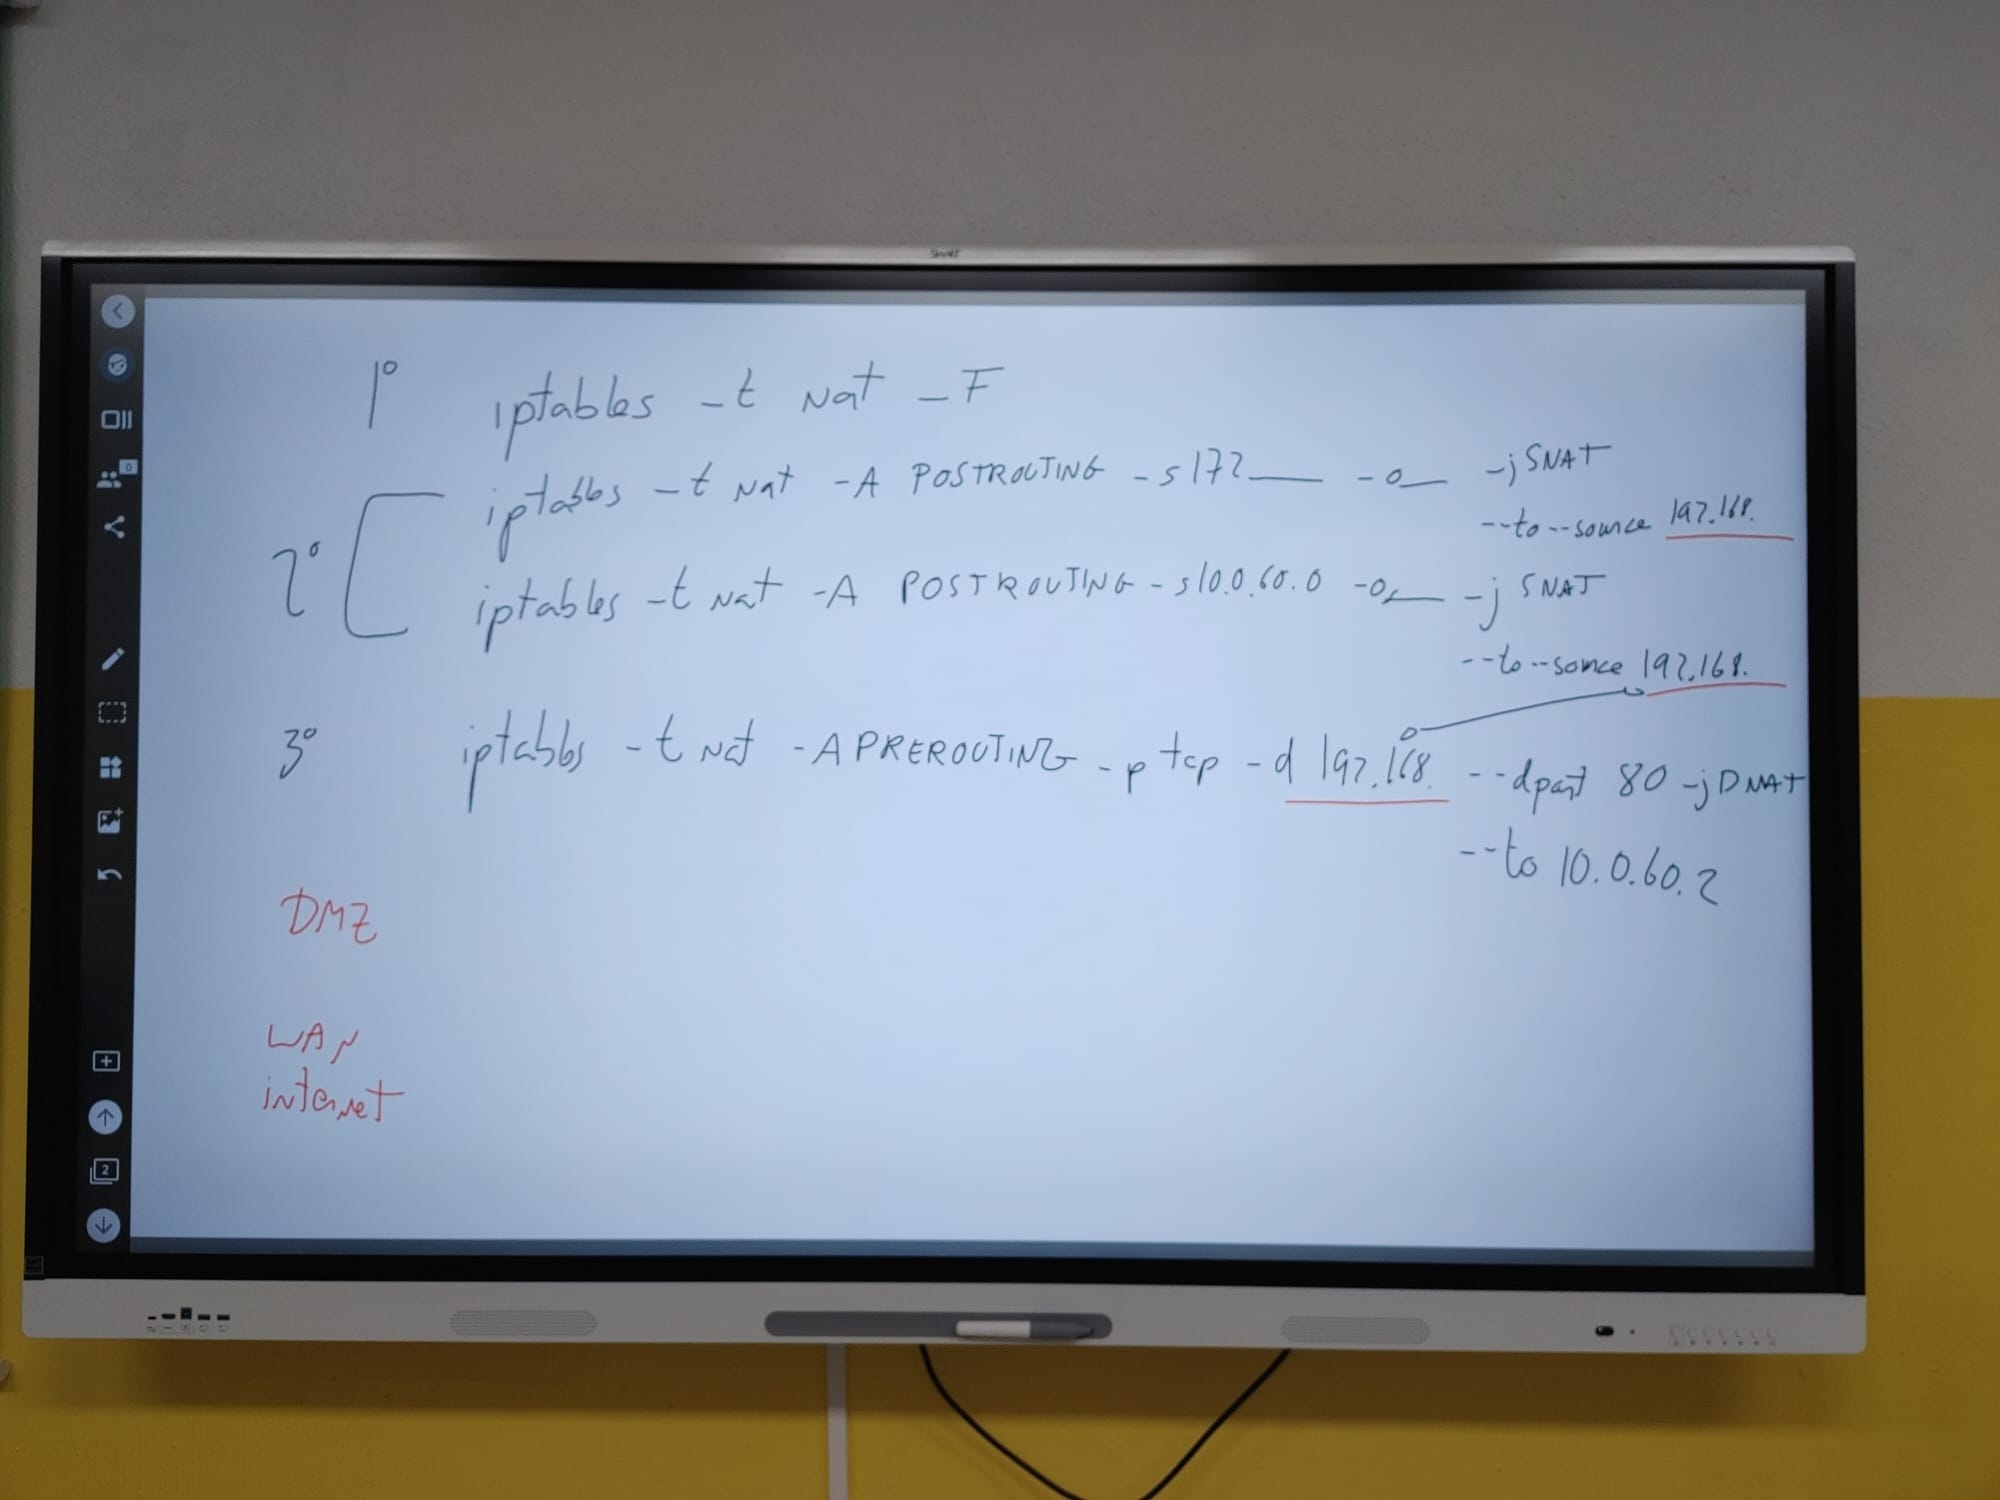 SMART
1º iptables -t nat -F
2º iptables -t nat -A POSTROUTING -s 172___ -o__ -j SNAT
--to--source 192.168.
iptables -t nat -A POSTROUTING -s 10.0.60.0 -o__ -j SNAT
--to--source 192.168.
3º iptables -t nat -A PREROUTING -p tcp -d 192.168. --dport 80 -j DNAT
--to 10.0.60.2
DMZ
WAN
internet
0
2